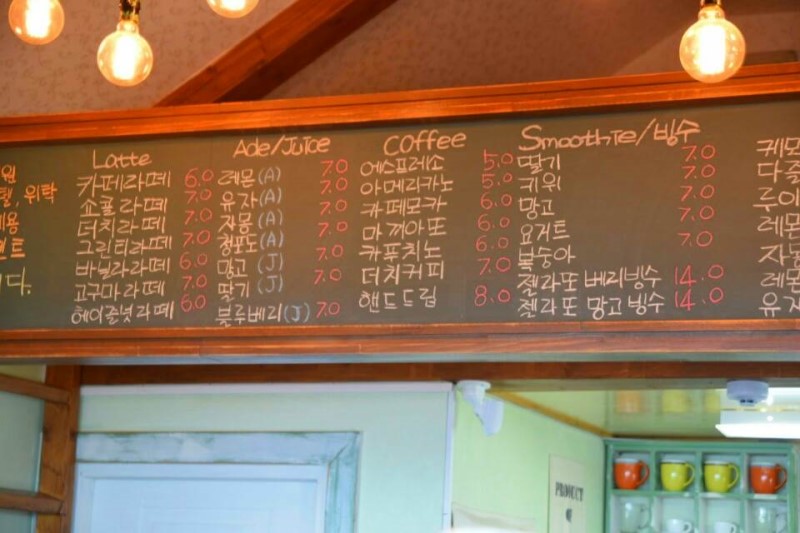 원
텔, 위탁
용
트
니다.
Latte
카페라떼 6.0
쇼콜라떼 7.0
더치라떼 7.0
그린티라떼 7.0
바닐라라떼 6.0
고구마라떼 7.0
헤이즐넛라떼 6.0
Ade/Juice
레몬(A) 7.0
유자(A) 7.0
자몽(A) 7.0
청포도(A) 7.0
망고(J) 7.0
딸기(J) 7.0
블루베리(J) 7.0
Coffee
에스프레소 5.0
아메리카노 5.0
카페모카 6.0
마끼아또 6.0
카푸치노 6.0
더치커피 7.0
핸드드립 8.0
Smoothie/빙수
딸기 7.0
키위 7.0
망고 7.0
요거트 7.0
복숭아 7.0
젤라또 베리빙수 14.0
젤라또 망고빙수 14.0
레몬
레몬
유자
PRODUCT
OF